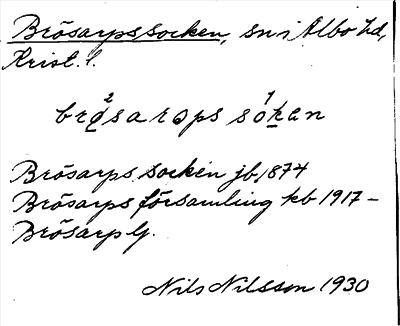 Brösarps socken, sn i Albo hd,
Krist. l.
brøsarəps sókən
Brösarps socken jb 1874
Brösarps församling kb 1917–
Brösarp G.
Nils Nilsson 1930